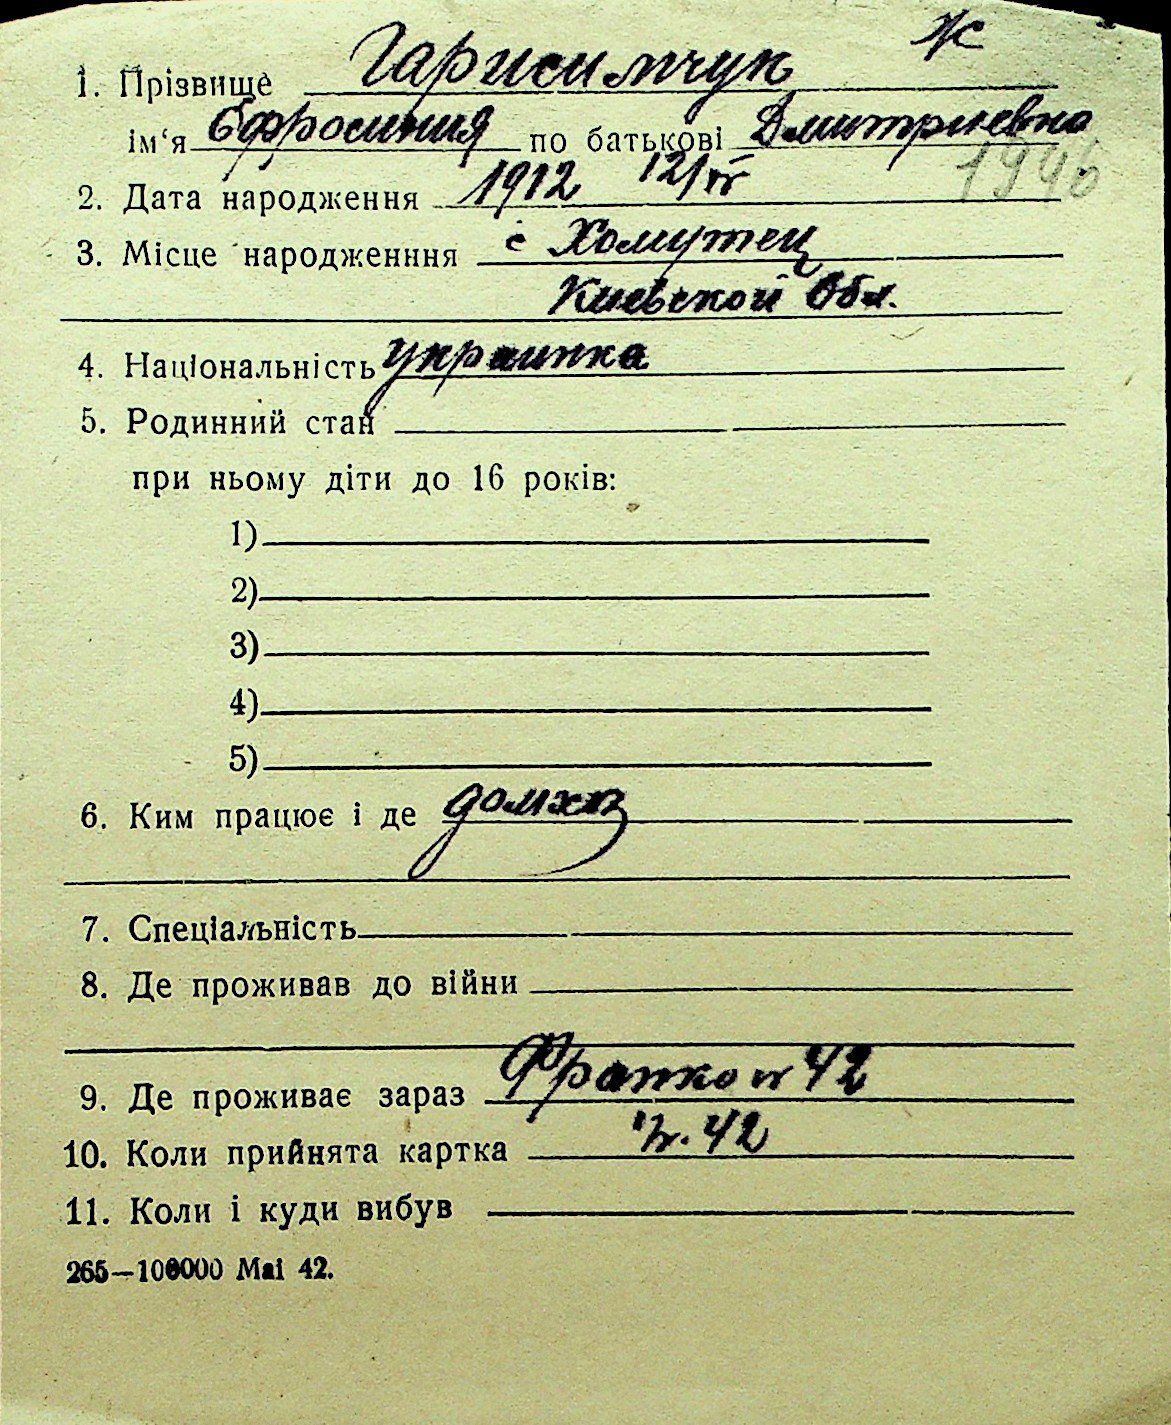 Ж
1. Прізвище Гарисимчук
ім‘я Ефросиния по батькові Дмитриевна
1946
2. Дата народження 1912 12/IV
3. Місце народженння с Хомутец
Киевской Обл.
4. Національність украинка
5. Родинний стан
при ньому діти до 16 років:
1)
2)
3)
4)
5)
6. Ким працює і де домхоз
7. Спеціальність
8. Де проживав до війни
9. Де проживає зараз Франко № 42
10. Коли прийнята картка 42
11. Коли і куди вибув
265—100000 Mai 42.